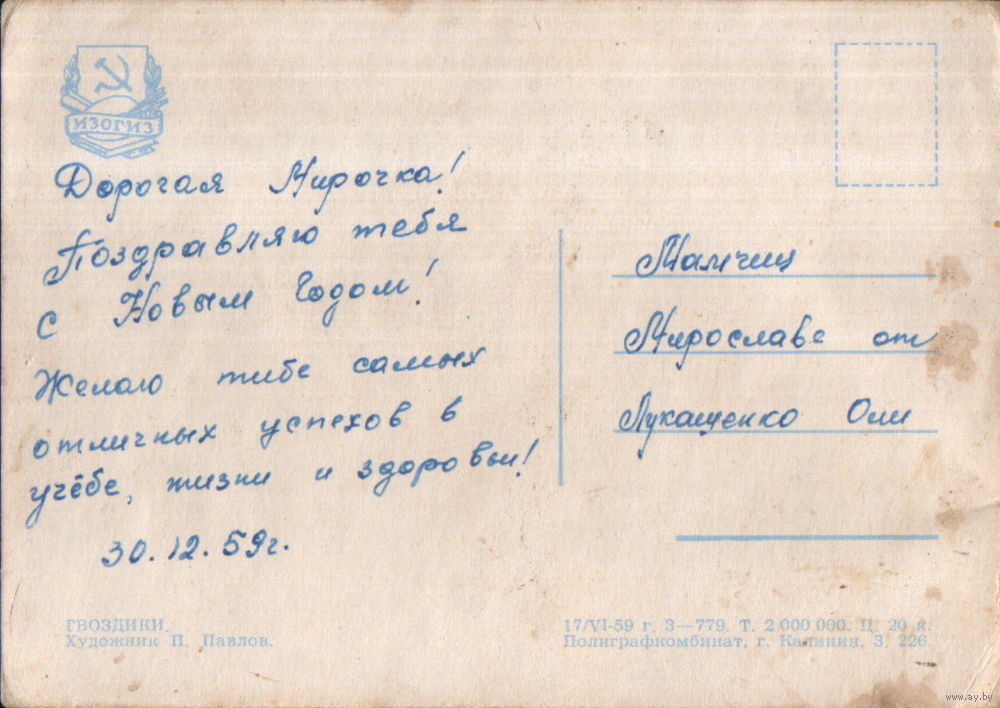 ИЗОГИЗ
Дорогая Мирочка!
Поздравляю тебя
с Новым Годом!
Желаю тибе самых
отличных успехов в
учёбе, жизни и здоровьи!
30.12.59г.
Мирославе от
Лукашенко Оли
ГВОЗДИКИ.
Художник П. Павлов.
17/VI-59 г. З—779. Т. 2 000 000. Ц. 20 к.
Полиграфкомбинат, г. Калинин, З. 226.
www.ay.by